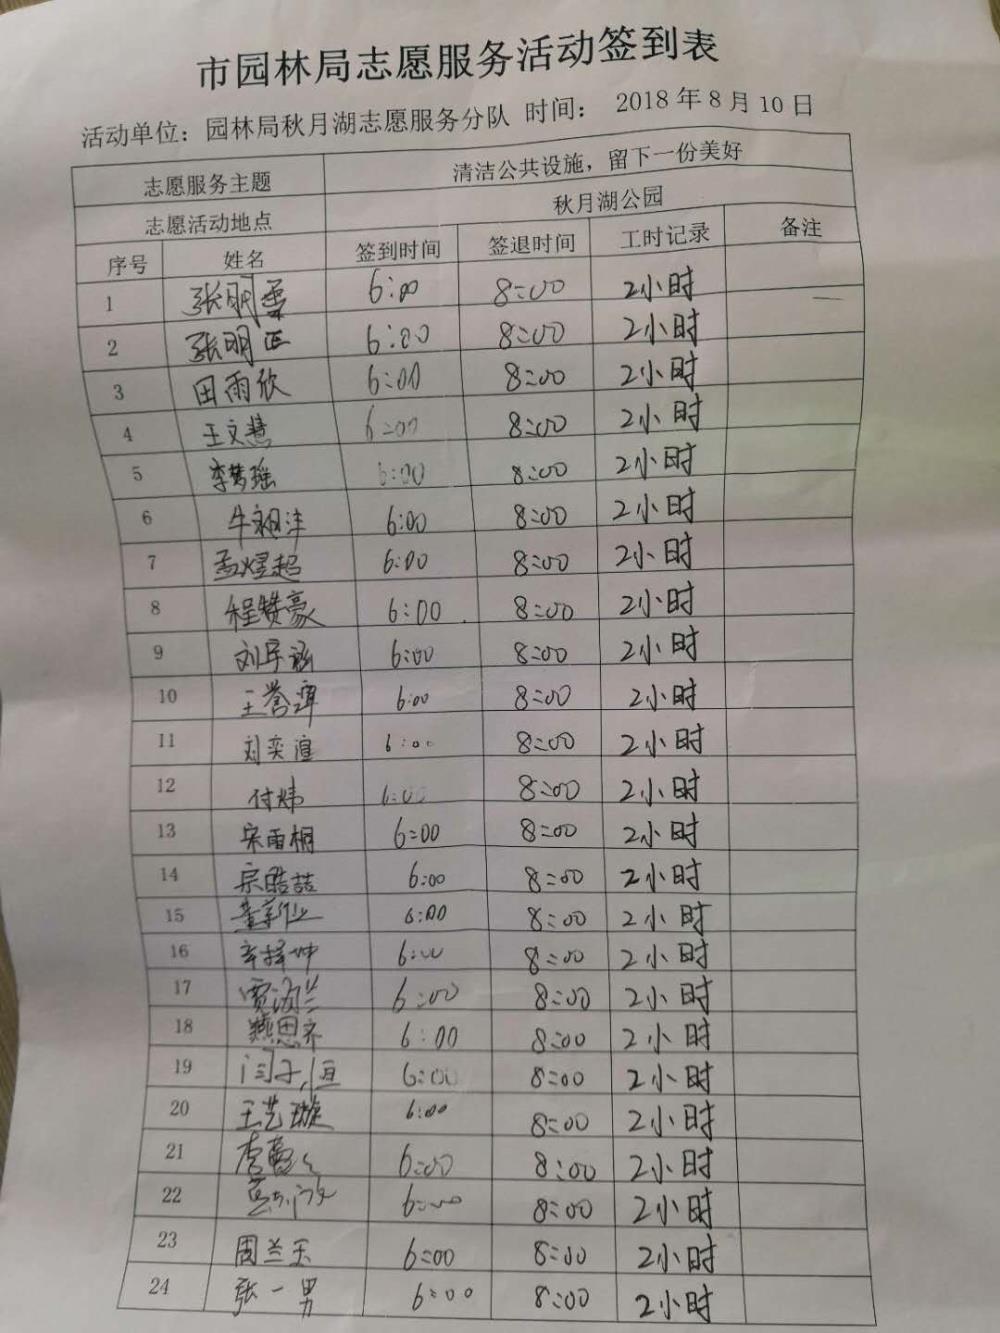 市园林局志愿服务活动签到表
活动单位：园林局秋月湖志愿服务分队 时间： 2018年8月10日
志愿服务主题 清洁公共设施，留下一份美好
志愿活动地点 秋月湖公园
序号 姓名 签到时间 签退时间 工时记录 备注
1 张明雪 6:00 8:00 2小时
2 张明正 6:00 8:00 2小时
3 田雨欣 6:00 8:00 2小时
4 王文慧 6:00 8:00 2小时
5 李梦瑶 6:00 8:00 2小时
6 6:00 8:00 2小时
7 孟煜超 6:00 8:00 2小时
8 程赞豪 6:00 8:00 2小时
9 刘宇涵 6:00 8:00 2小时
10 王誉潭 6:00 8:00 2小时
11 刘奕渲 6:00 8:00 2小时
12 付炜 6:00 8:00 2小时
13 宋雨桐 6:00 8:00 2小时
14 宗皓喆 6:00 8:00 2小时
15 6:00 8:00 2小时
16 辛择坤 6:00 8:00 2小时
17 6:00 8:00 2小时
18 6:00 8:00 2小时
19 闫子恒 6:00 8:00 2小时
20 王艺璇 6:00 8:00 2小时
21 6:00 8:00 2小时
22 6:00 8:00 2小时
23 周兰玉 6:00 8:00 2小时
24 张一男 6:00 8:00 2小时